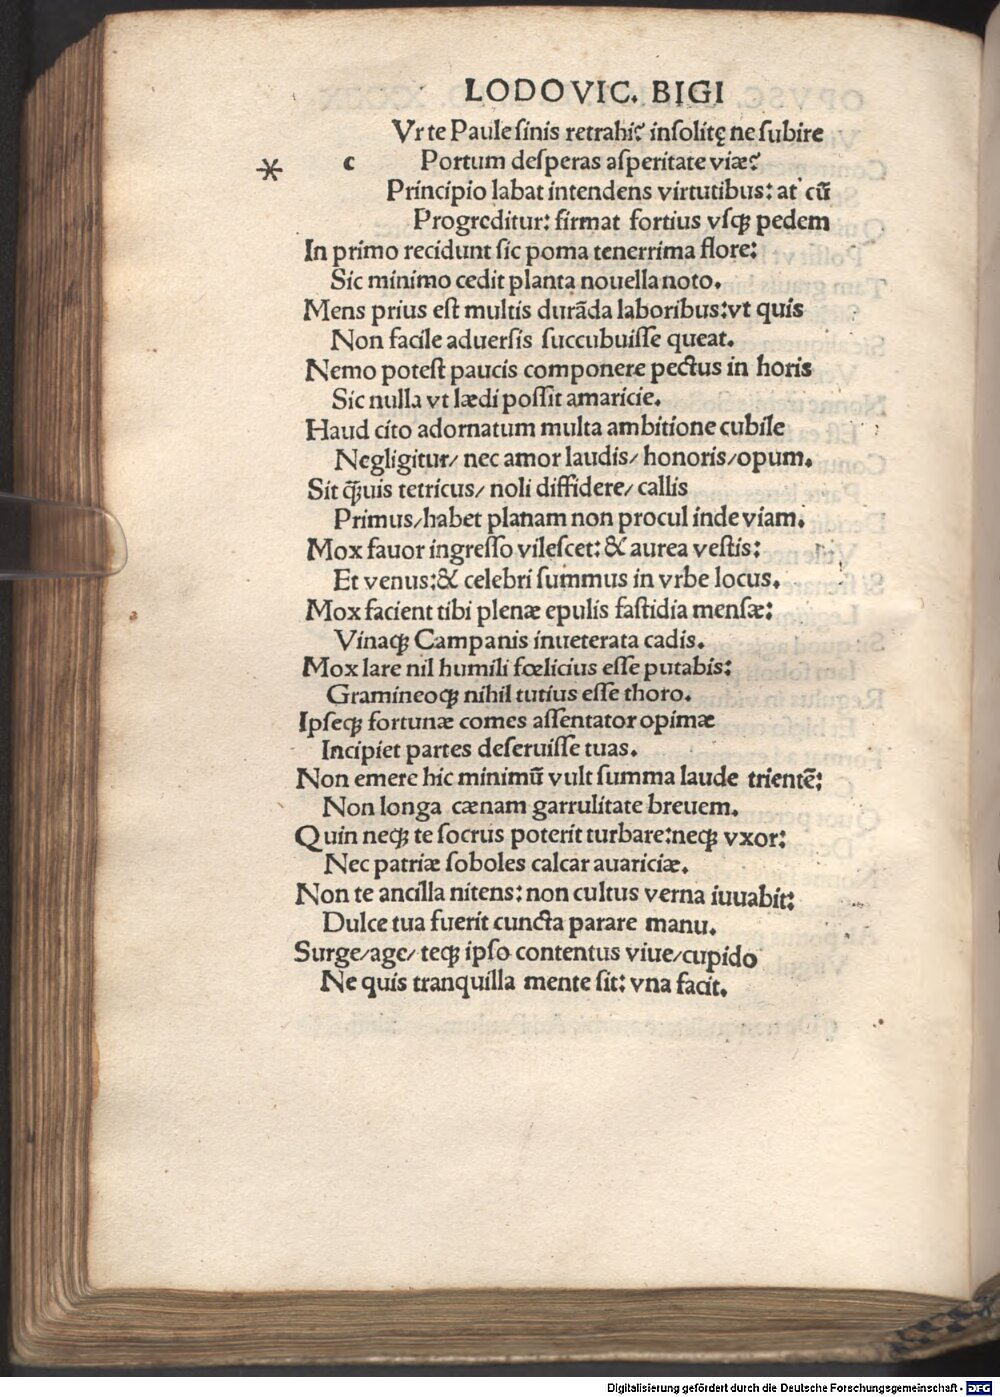 LODOVIC. BIGI
Vr te Paule sinis retrahi? insolitę ne subire
* c Portum desperas asperitate viæ?
Principio labat intendens virtutibus: at cū
Progreditur: firmat fortius vsqꝫ pedem
In primo recidunt sic poma tenerrima flore:
Sic minimo cedit planta nouella noto.
Mens prius est multis durāda laboribus: vt quis
Non facile aduersis succubuisse queat.
Nemo potest paucis componere pectus in horis
Sic nulla vt lædi possit amaricie.
Haud cito adornatum multa ambitione cubile
Negligitur/ nec amor laudis/ honoris/ opum.
Sit q̃uis tetricus/ noli diffidere/ callis
Primus/ habet planam non procul inde viam.
Mox fauor ingresso vilescet: & aurea vestis:
Et venus: & celebri summus in vrbe locus.
Mox facient tibi plenæ epulis fastidia mensæ:
Vinaqꝫ Campanis inueterata cadis.
Mox lare nil humili fœlicius esse putabis:
Gramineoqꝫ nihil tutius esse thoro.
Ipseqꝫ fortunæ comes assentator opimæ
Incipiet partes deseruisse tuas.
Non emere hic minimū vult summa laude trientē:
Non longa cænam garrulitate breuem.
Quin neqꝫ te socrus poterit turbare: neqꝫ vxor:
Nec patriæ soboles calcar auariciæ.
Non te ancilla nitens: non cultus verna iuuabit:
Dulce tua fuerit cuncta parare manu.
Surge/ age/ teqꝫ ipso contentus viue/ cupido
Ne quis tranquilla mente sit: vna facit.
Digitalisierung gefördert durch die Deutsche Forschungsgemeinschaft - DFG